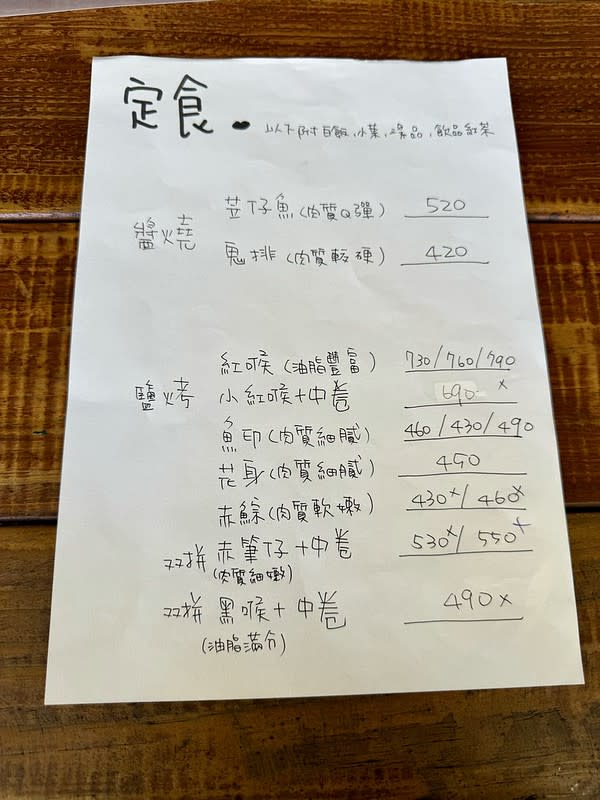 定食. 以下附白飯,小菜,湯品,飲品紅茶
醬燒 荳仔魚(肉質Q彈) 520
鬼排(肉質較硬) 420
鹽烤 紅喉(油脂豐富) 730/760/790
小紅喉+中卷 690 x
魚印(肉質細膩) 460/430/490
花身(肉質細膩) 450
赤鯮(肉質軟嫩) 430x/460x
双拼 赤筆仔+中卷 530x/550x
(肉質細嫩)
双拼 黑喉+中卷 490x
(油脂滿分)